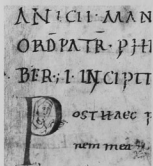 ANICII·MAN
ORD·PATR·PHI
BER·I·INCIPIT
POST HAEC
rem mea